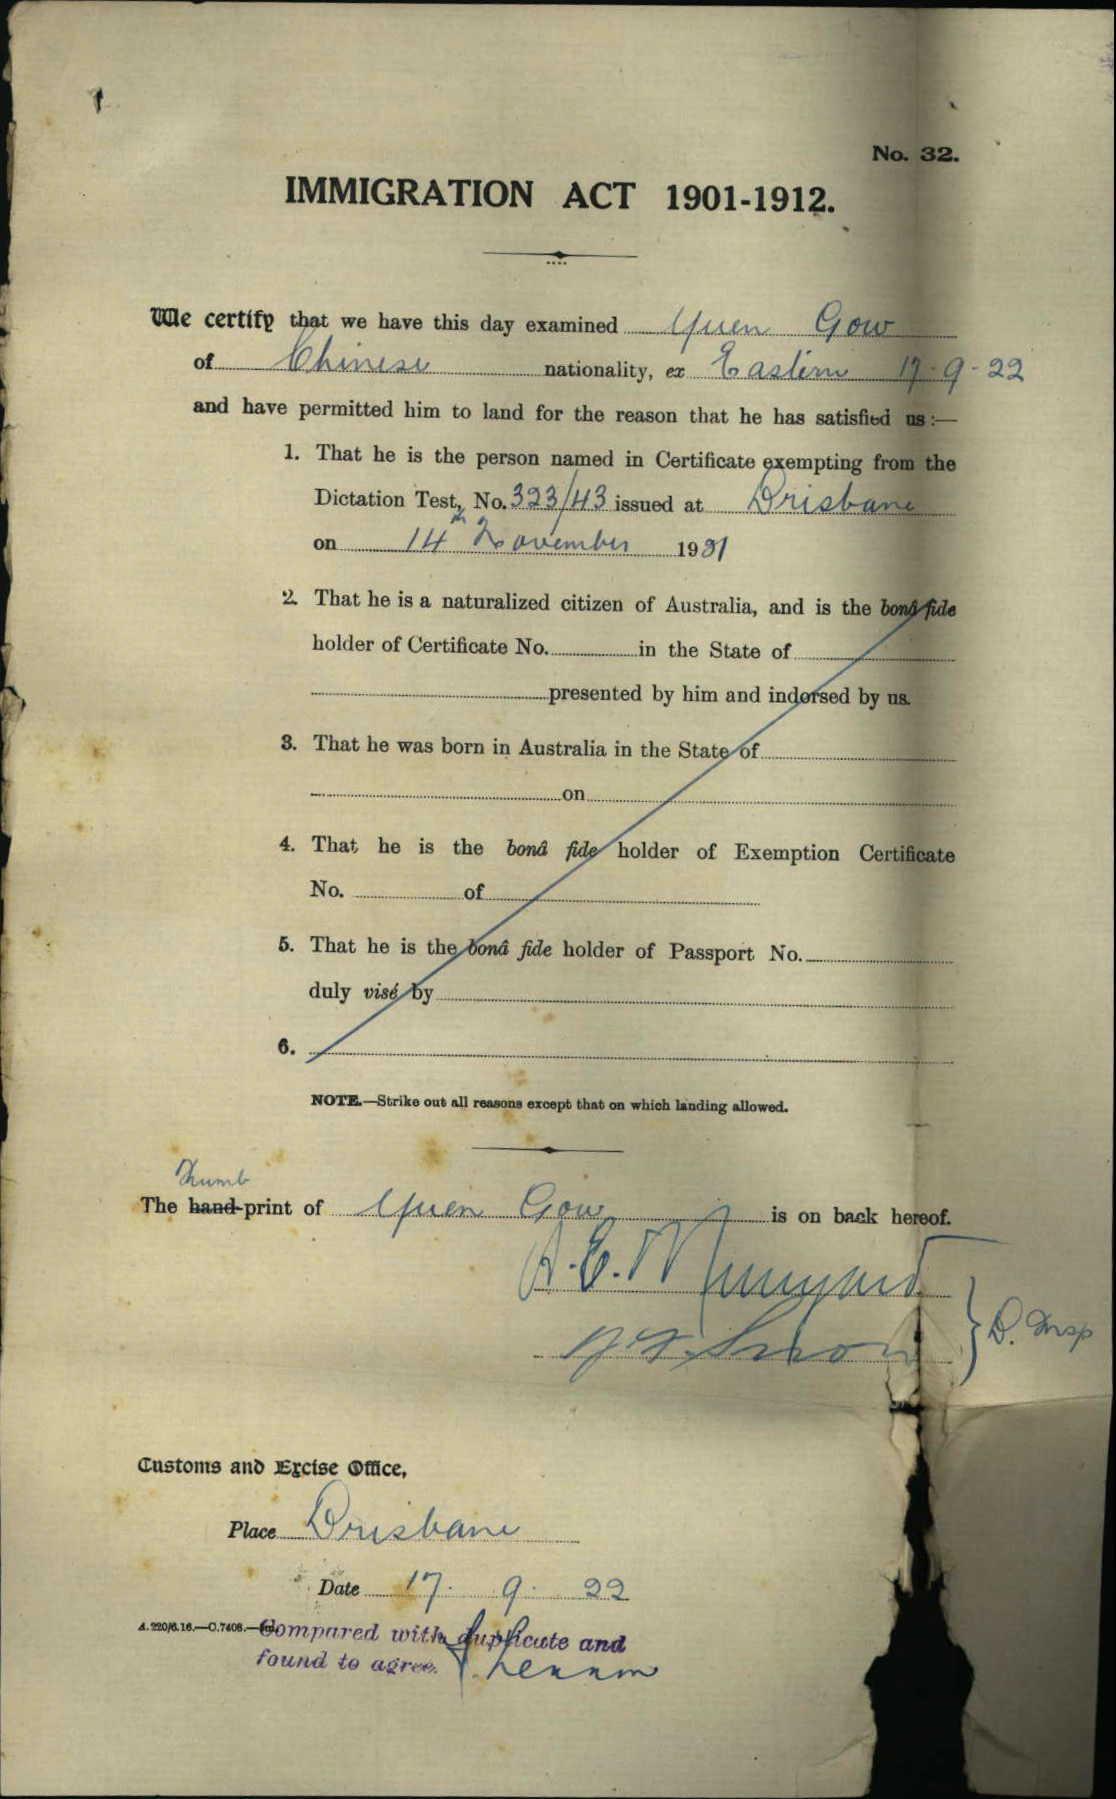 No. 32.
IMMIGRATION ACT 1901-1912.
We certify that we have this day examined Yuen Gow
of Chinese nationality, ex Eastern 17-9-22
and have permitted him to land for the reason that he has satisfied us:—
1. That he is the person named in Certificate exempting from the
Dictation Test, No. 323/43 issued at Brisbane
on 14th November 1921
2. That he is a naturalized citizen of Australia, and is the bonâ fide
holder of Certificate No. in the State of
presented by him and indorsed by us.
3. That he was born in Australia in the State of
on
4. That he is the bonâ fide holder of Exemption Certificate
No. of
5. That he is the bonâ fide holder of Passport No.
duly visé by
6.
NOTE.—Strike out all reasons except that on which landing allowed.
Thumb
The hand-print of Yuen Gow is on back hereof.
A. E.
D. Insp
Customs and Excise Office,
Place Brisbane
Date 17. 9. 22
A.220/6.16.—C.7408.— Compared with duplicate and
found to agree. Lennon